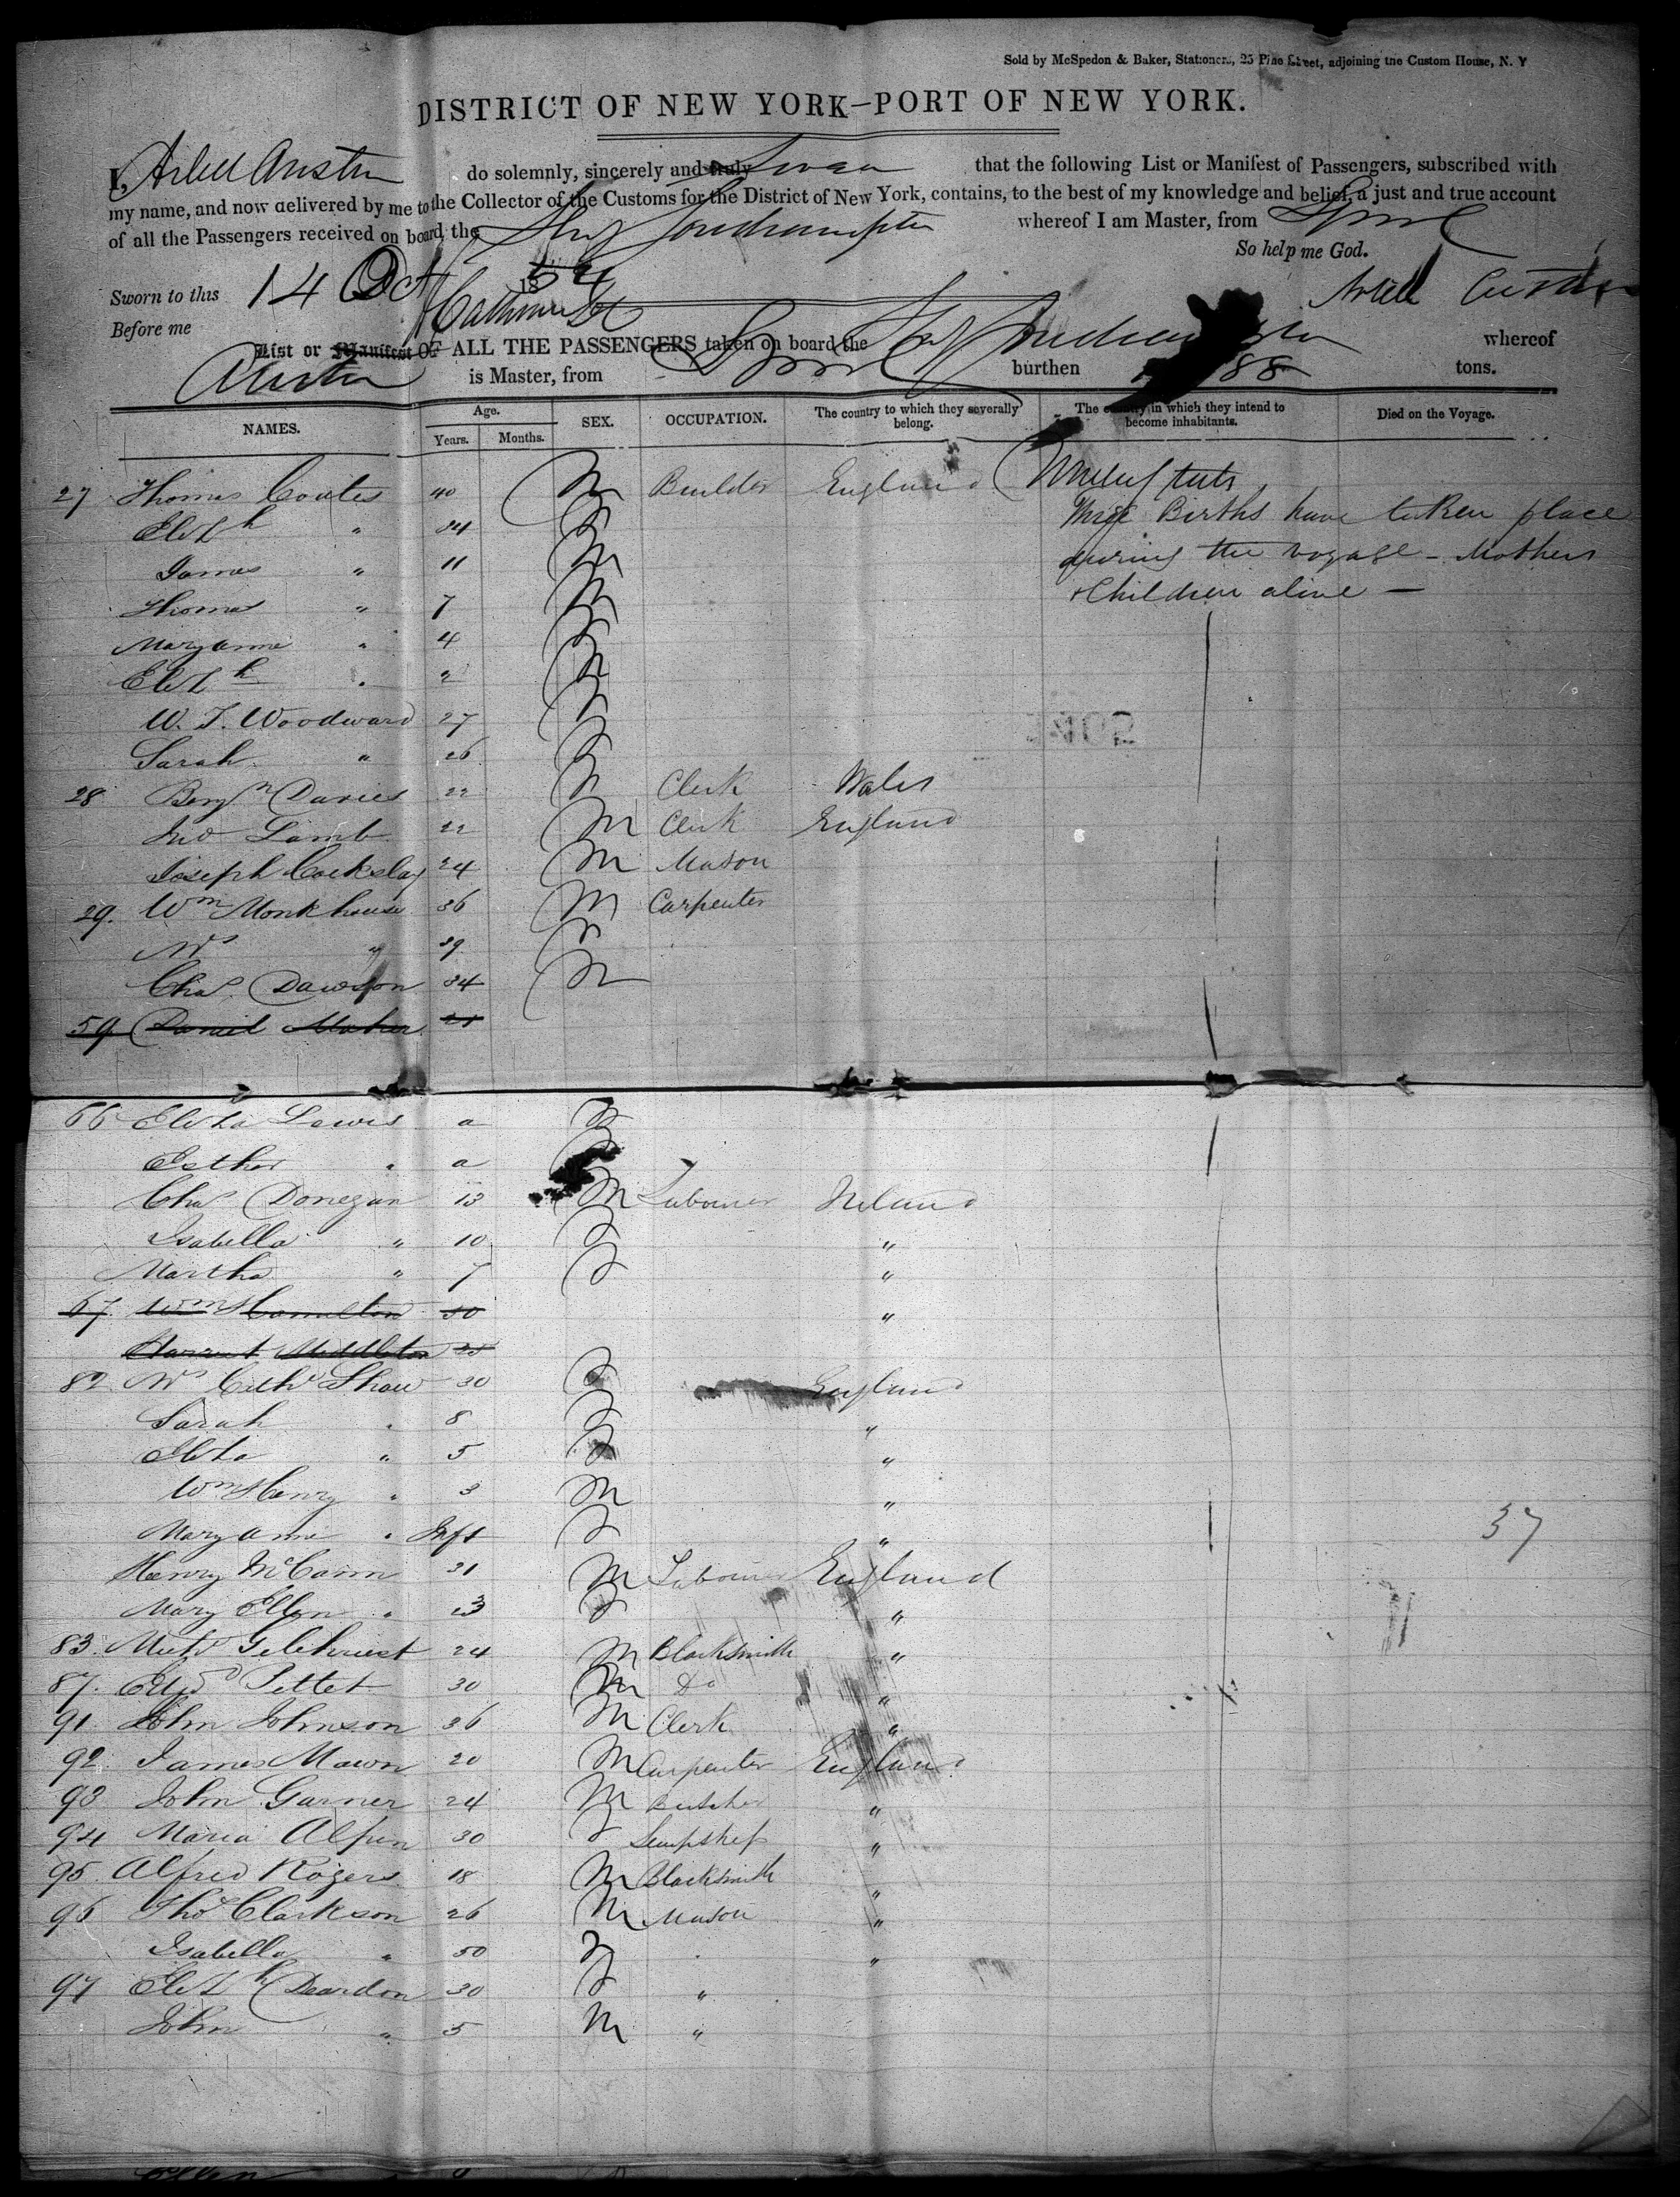 Sold by McSpedon & Baker, Stationers, 25 Pine Street, adjoining the Custom House, N. Y
DISTRICT OF NEW YORK—PORT OF NEW YORK.
I, Austin do solemnly, sincerely and truly Swear that the following List or Manifest of Passengers, subscribed with
my name, and now delivered by me to the Collector of the Customs for the District of New York, contains, to the best of my knowledge and belief, a just and true account
of all the Passengers received on board the Ship Southampton whereof I am Master, from Lpool
So help me God.
Sworn to this 14 Oct 18
Before me Austin
List or Manifest OF ALL THE PASSENGERS taken on board the Ship Southampton whereof
Austin is Master, from Lpool burthen 88 tons.
NAMES. Age. Years. Months. SEX. OCCUPATION. The country to which they severally belong. The country in which they intend to become inhabitants. Died on the Voyage.
27 Thomas Coates 40 M Builder England United States
Elizh " 34 F Three Births have taken place
James " 11 M during the voyage - Mothers
Thomas " 7 M & Children alive —
Maryanne " 4 F
Elizh " 2 F
W. J. Woodward 27 M
Sarah " 26 F
28 Benjn Davies 22 M Clerk Wales
Jno Lamb 22 M Clerk England
Joseph Cockslay 24 M Mason
29. Wm Monkhouse 36 M Carpenter
Mrs " 39 F
Chas Dawson 34 M
59 Daniel Maher 21
66 Eliza Lewis a F
Esther " a
Chas Donegan 13 M Labourer Ireland
Isabella " 10 F "
Martha " 7 F "
67. Wm Hamilton 30 "
Harriet Middleton
82 Mrs Cathe Shaw 30 F England
Sarah " 8 F "
Eliza " 5 F "
Wm Henry " 3 M "
Mary Anne " Inft F " 37
Henry McCann 31 M Labourer England
Mary Ellen " 23 F "
83. Gilchriest 24 M Blacksmith "
87. Edwd Pettet 30 M Do "
91 John Johnson 36 M Clerk "
92. James Mawn 20 M Carpenter England
93 John Garner 24 M Butcher "
94 Maria Alpin 30 F "
95. Alfred Rogers 18 M Blacksmith "
96 Thos Clarkson 26 M Mason "
Isabella " 50 F "
97 Elizh Deardon 30 F "
John " 5 M "
Ellen